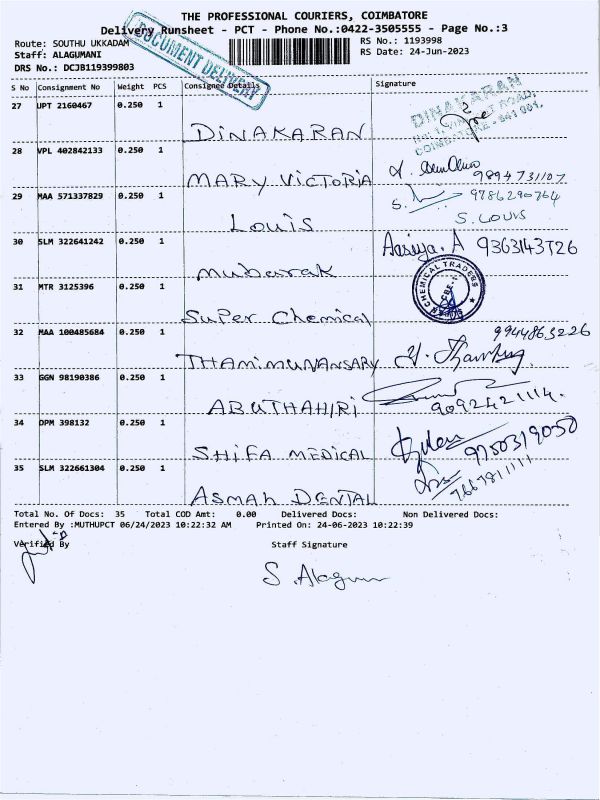 THE PROFESSIONAL COURIERS, COIMBATORE
Delivery Runsheet - PCT - Phone No.:0422-3505555 - Page No.:3
Route: SOUTHU UKKADAM
RS No.: 1193998
Staff: ALAGUMANI
RS Date: 24-Jun-2023
DRS No.: DCJB119399803
DOCUMENT DELIVERY
S No Consignment No Weight PCS Consignee Details Signature
27 UPT 2160467 0.250 1
DINAKARAN
DINAKARAN
COIMBATORE - 641 001.
28 VPL 402842133 0.250 1
MARY VICTORIA
9894731107
29 MAA 571337829 0.250 1
Louis
9786290764
S. LOUIS
30 SLM 322641242 0.250 1
mubarak
Aasiya. A 9363143726
31 MTR 3125396 0.250 1
Super Chemical
CHEMICAL TRADERS
32 MAA 100485684 0.250 1
THAMIMUNANSARY
9944863226
33 GGN 98190386 0.250 1
ABUTHAHIRI
9092421114.
34 DPM 398132 0.250 1
SHIFA MEDICAL
9750319050
35 SLM 322661304 0.250 1
ASMAH DENTAL
7667811111
Total No. Of Docs: 35 Total COD Amt: 0.00 Delivered Docs: Non Delivered Docs:
Entered By :MUTHUPCT 06/24/2023 10:22:32 AM Printed On: 24-06-2023 10:22:39
Verified By Staff Signature
S. Alagu